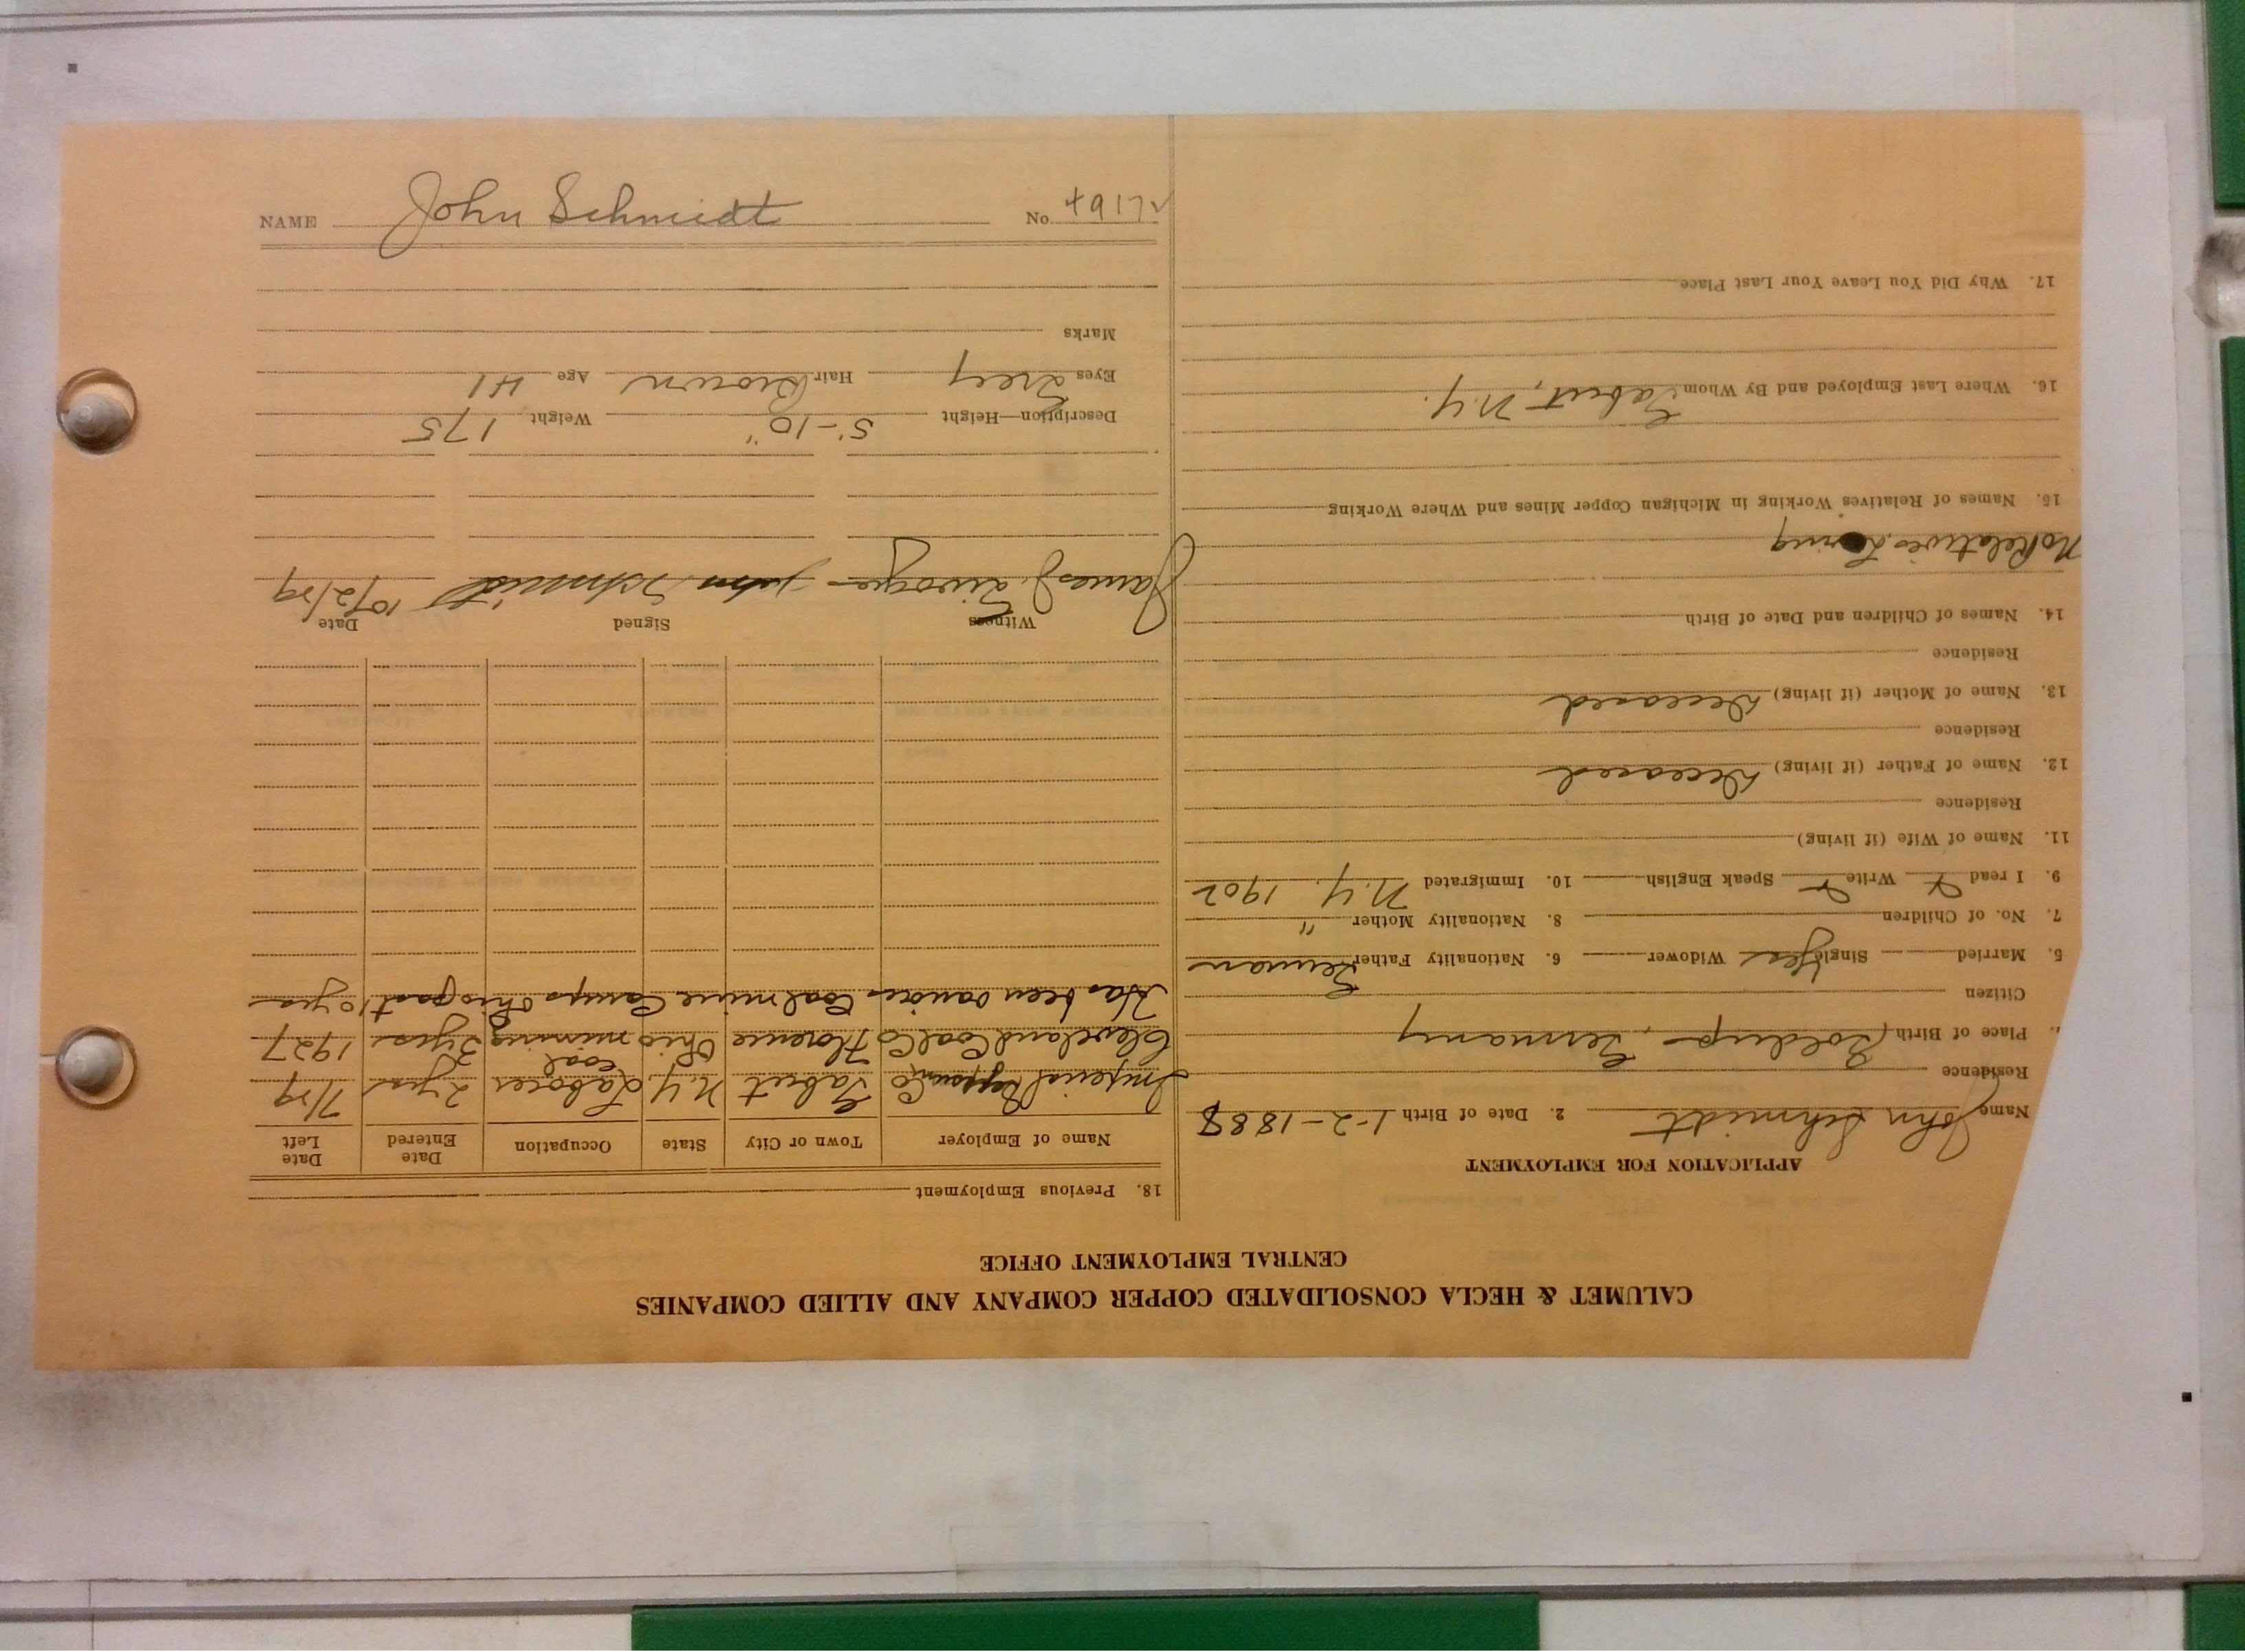 CALUMET & HECLA CONSOLIDATED COPPER COMPANY AND ALLIED COMPANIES
CENTRAL EMPLOYMENT OFFICE
APPLICATION FOR EMPLOYMENT
Name John Schmidt 2. Date of Birth 1-2-1888
Residence
Place of Birth Germany
Citizen
5. Married Single Yes Widower 6. Nationality Father German
7. No. of Children 8. Nationality Mother "
9. I read Write Speak English 10. Immigrated N.Y. 1902
11. Name of Wife (if living)
Residence
12. Name of Father (if living) Deceased
Residence
13. Name of Mother (if living) Deceased
Residence
14. Names of Children and Date of Birth
No Relatives Living
15. Names of Relatives Working in Michigan Copper Mines and Where Working
16. Where Last Employed and By Whom N.Y.
17. Why Did You Leave Your Last Place
18. Previous Employment
Name of Employer Town or City State Occupation Date Entered Date Left
Imperial Co N.Y. Laborer 2 yrs 7/29
Cleveland Coal Co Florence Ohio Coal mining 1927
Has been various Coal mine Camps Ohio past 10 yrs
Witness Signed Date
James J. John Schmidt 10/2/29
Description—Height 5'-10" Weight 175
Eyes Grey Hair Brown Age 41
Marks
NAME John Schmidt No. 49172